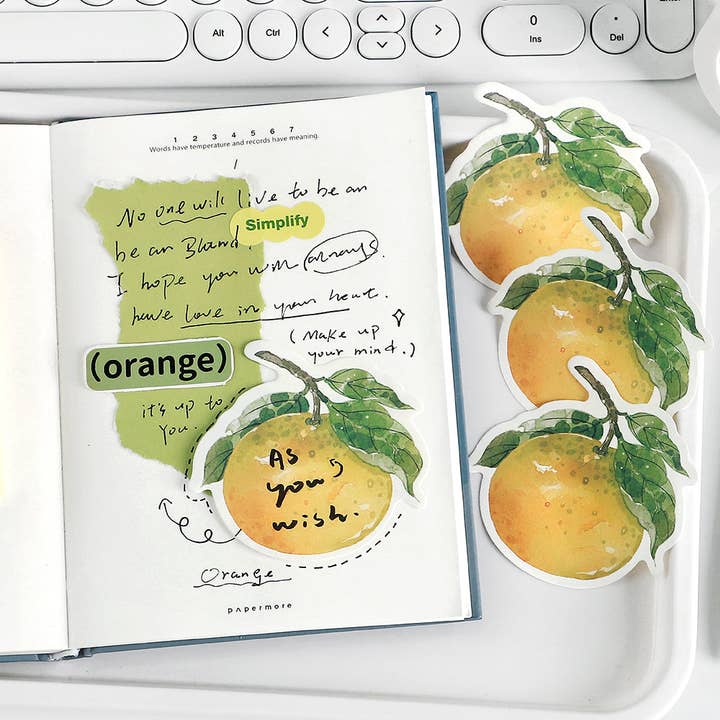 Alt
Ctrl
0
Ins
Del
1 2 3 4 5 6 7
Words have temperature and records have meaning.
No one will live to be an
be an
Simplify
I hope you will always.
have love in your heart.
(Make up
your mind.)
(orange)
it's up to
you.
As
you
wish.
Orange
papermore